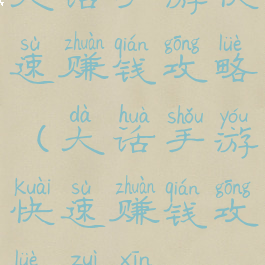 sù zhuàn qián gōng lüè
速赚钱攻略
dà huà shǒu yóu
（大话手游
kuài sù zhuàn qián gōng
快速赚钱攻
lüè zuì xīn